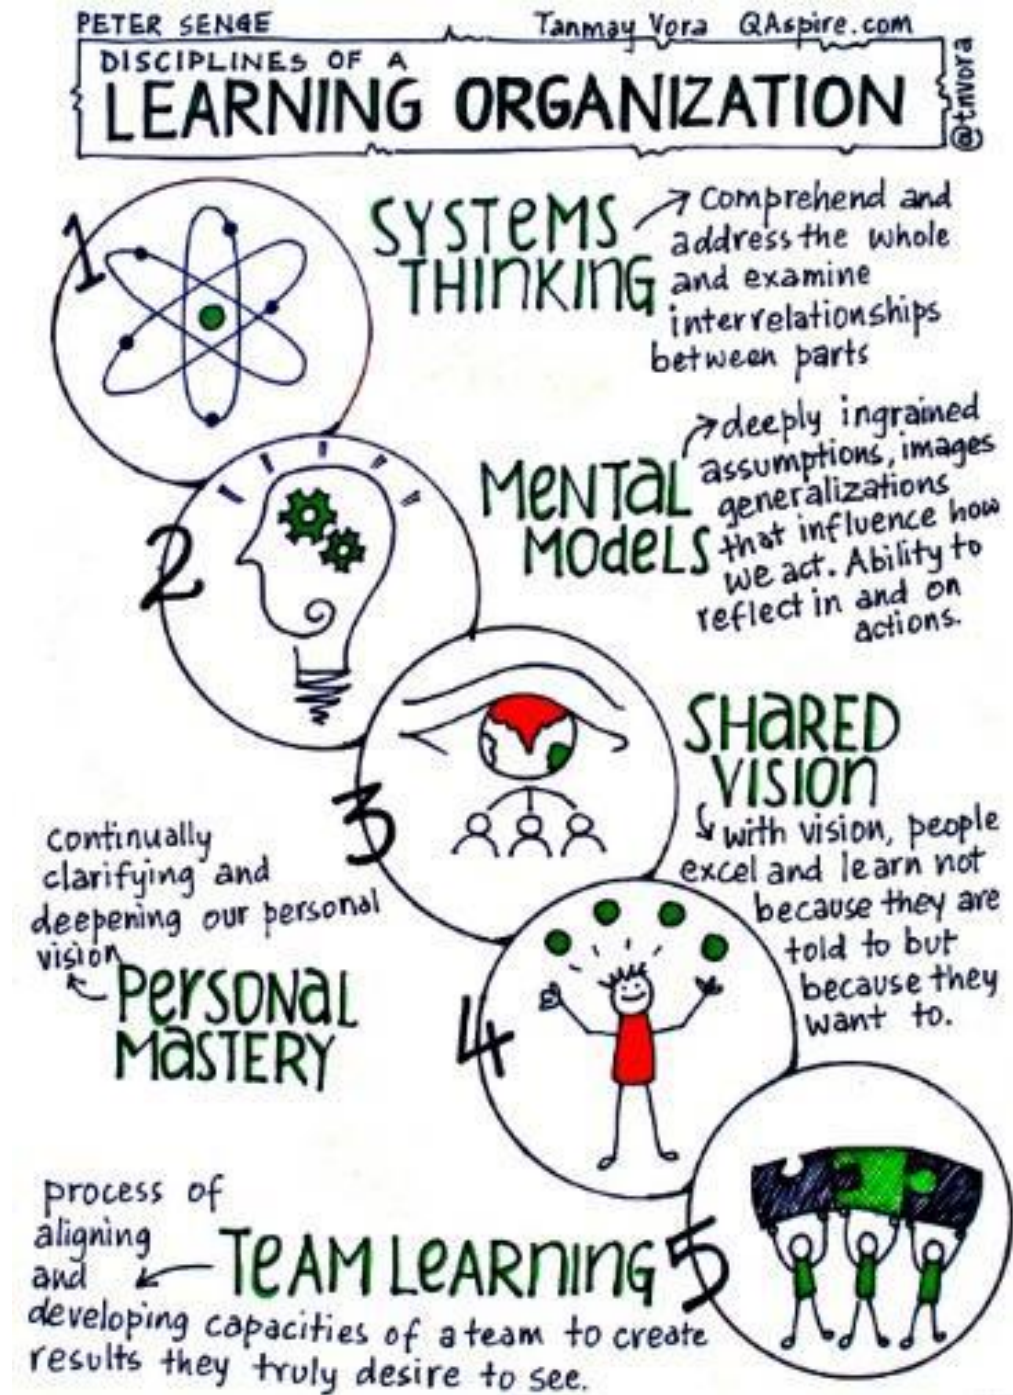 PETER SENGE
Tanmay Vora QAspire.com
@tnvora
DISCIPLINES OF A
LEARNING ORGANIZATION
1
SYSTEMS
THINKING
Comprehend and
address the whole
and examine
interrelationships
between parts
2
MENTAL
MODELS
deeply ingrained
assumptions, images
generalizations
that influence how
we act. Ability to
reflect in and on
actions.
3
SHARED
VISION
with vision, people
excel and learn not
because they are
told to but
because they
want to.
4
continually
clarifying and
deepening our personal
vision
PERSONAL
MASTERY
5
process of
aligning
and
TEAM LEARNING
developing capacities of a team to create
results they truly desire to see.